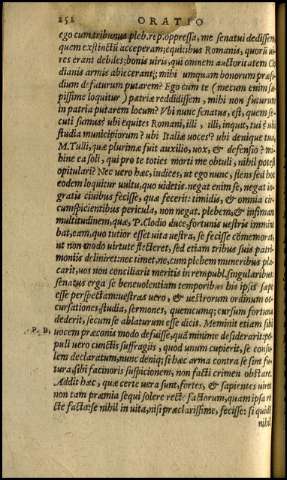 252 ORATIO
ego cum tribunus pleb. rep. oppressa, me senatui dedissem
quem exstinctum acceperam; equitibus Romanis, quorū ui-
res erant debiles; bonis uiris, qui omnem auctoritatem Clo
dianis armis abiecerant; mihi umquam bonorum præsi-
dium defuturum putarem? Ego cum te (mecum enim sæ-
pissime loquitur) patriæ reddidissem, mihi non futurum
in patria putarem locum? Vbi nunc senatus, est, quem se-
cuti sumus? ubi equites Romani, illi, illi, inquit, tui? ubi
studia municipiorum? ubi Italiæ uoces? ubi denique tua,
M. Tulli, quæ plurimis fuit auxilio, uox, & defensio? mi-
hine ea soli, qui pro te toties morti me obtuli, nihil potest
opitulari? Nec uero hæc, iudices, ut ego nunc, flens, sed hoc
eodem loquitur uultu, quo uidetis. negat enim se, negat in-
gratis ciuibus fecisse, quæ fecerit: timidis, & omnia cir
cumspicientibus pericula, non negat. plebem, & infimam
multitudinem, quæ, P. Clodio duce, fortunis uestris immine
bat, eam, quo tutior esset uita uestra, se fecisse cōmemorat,
ut non modo uirtute flecteret, sed etiam tribus suis patri-
moniis deliniret: nec timet, ne, cum plebem muneribus pla
carit, uos non conciliarit meritis in rempubl. singularibus.
senatus erga se beneuolentiam temporibus his ipsis sæpe
esse perspectam: uestras uero, & uestrorum ordinum oc
cursationes, studia, sermones, quemcumq; cursum fortuna
dederit, secum se ablaturum esse dicit. Meminit etiam sibi
P. B. uocem præconis modo defuisse, quā minime desiderarit: po
puli uero cunctis suffragiis, quod unum cupierit, se consu-
lem declaratum, nunc deniq; si hæc arma contra se sint fu-
tura, sibi facinoris suspicionem, non facti crimen obstare.
Addit hæc, quæ certe uera sunt, fortes, & sapientes uiros
non tam præmia sequi solere recte factorum, quam ipsa re
cte facta: se nihil in uita, nisi præclarissime, fecisse: si quidē
nihil